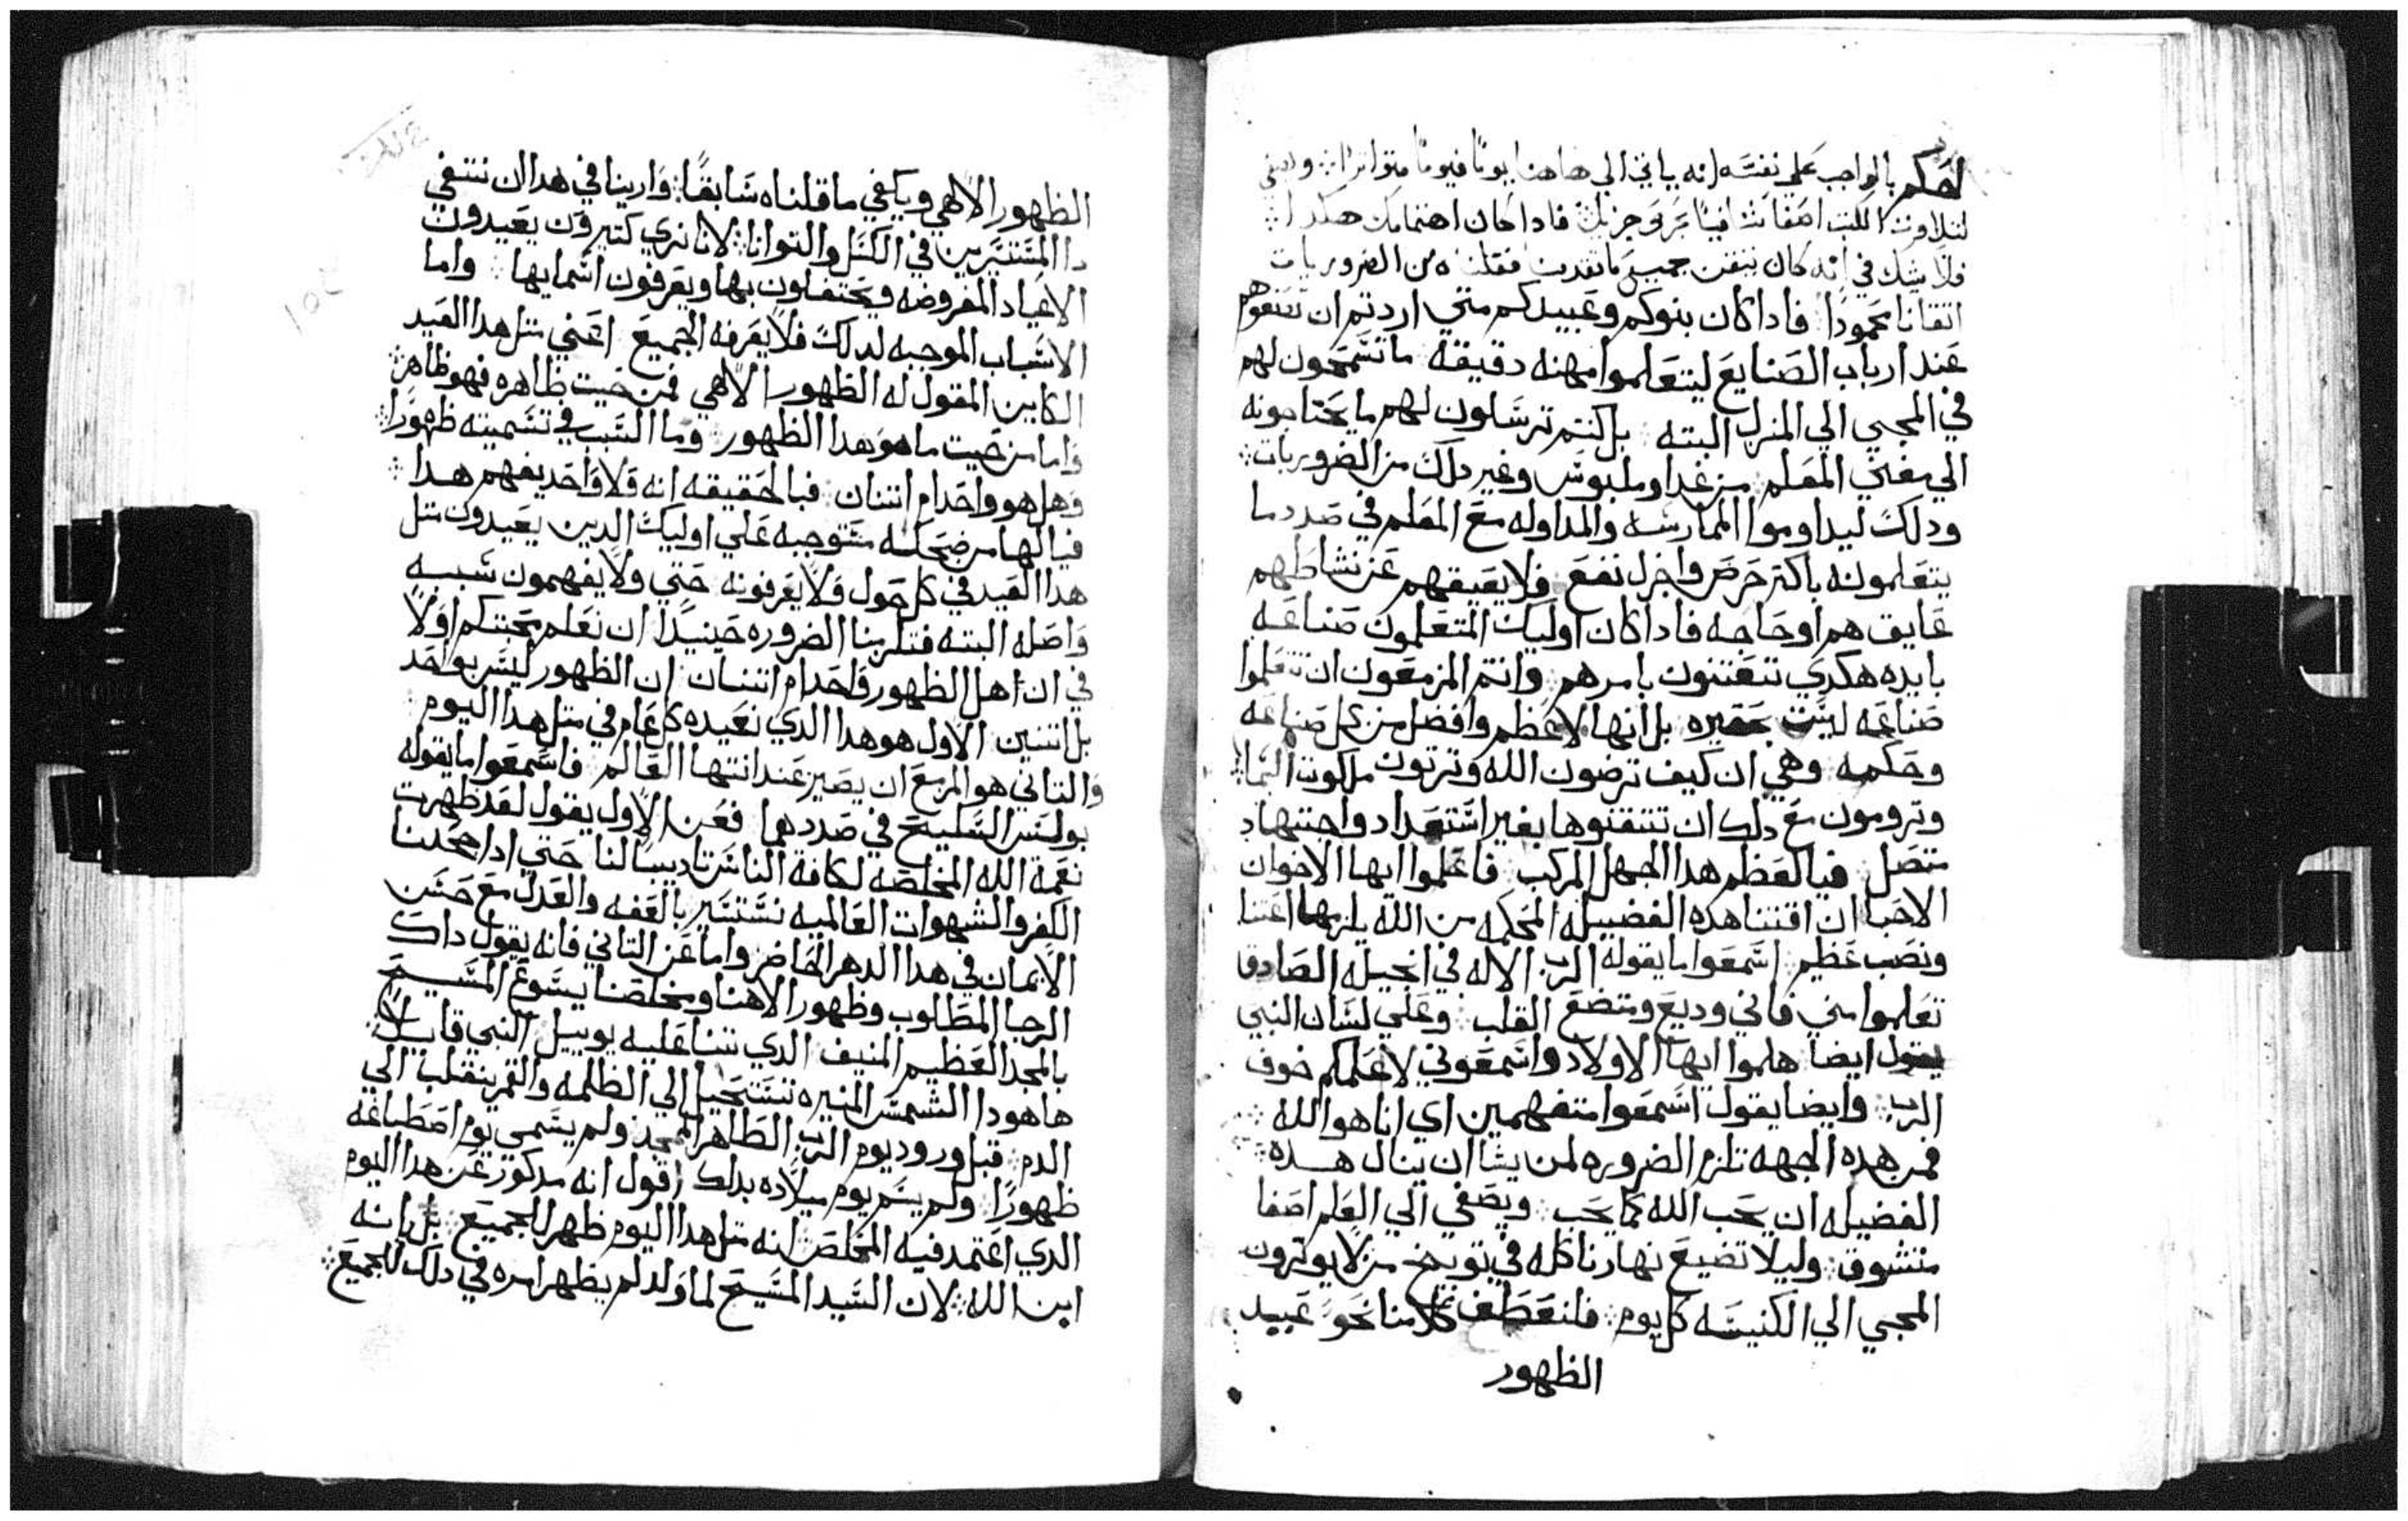 لحكم بالواجب على نفسه انه ياتي الي هاهنا يومًا فيومًا متواترا ويصغي
لتلاوت الكتب اصغا فادا كان اهتمامك هكدا
فلا يشك في انه كان يتقن جميع ما تقدمت فقلت ه من الضروريات
اتقانا محمودًا فاداكان بنوكم وعبيدكم متي اردتم ان تضعوهم
عند ارباب الصنايع ليتعلموا مهنه دقيقه ما تسمحون لهم
في المجي الي المنزل البته بل كنتم ترسلون لهم ما يحتاجونه
الي مغني المعلم من غدا وملبوس وغير دلك من الضروريات
ودلك ليداوموا الممارسه والمداوله مع المعلم في صدد ما
يتعلمونه باكتر حرص واجزل نفع فلا يعيقهم عن نشاطهم
عايق هم او حاجه فاداكان اوليك المتعلمون صناعه
بايده هكدي تتعتنون بامرهم وانتم المزمعون ان تتعلموا
صناعه ليست بحقيره بل انها لاعظم وافضل من كل صناعه
وحكمه وهي ان كيف ترضون الله وترتون ملكوت السما
وترومون مع دلك ان تتقنوها بغير استعداد واجتهاد
متصل فيالعظم هدا الجهل المركب فاعلموا ايها الاخوان
الاحبا ان اقتنا هده الفضيله المحكمه من الله يلزمها اعتنا
ونصب عظيم اسمعوا ما يقوله الرب الاله في انجيله الصادق
تعلموا مني فاني وديع ومتضع القلب وعلي لسان النبي
يقول ايضا هلموا ايها الاولاد واسمعوني لاعلمكم خوف
الرب وايضا يقول اسمعوا متفهمين اي انا هو الله
فمن هده الجهه تلزم الضروره لمن يشا ان ينال هده
الفضيله ان يحب الله كما يحب ويصغي الي العلم اصغا
متشوق وليلا تضيع نهارنا كله في توبيخ من لا يوترون
المجي الي الكنيسه كل يوم فلنعطف كلامنا نحو عيد
الظهور
الظهور الالهي ويكفي ما قلناه سابقًا وارينا في هدا ان ننتفي
دا المتسترين في الكسل والتوانا لانا نري كتيرون يعيدون
الاعياد المفروضه ويحتفلون بها ويعرفون اسمايها واما
الاسباب الموجبه لدلك فلا يعرفه الجميع اعني متل هدا العيد
الكاين المقول له الظهور الالهي فمن حيت ظاهره فهو ظاهر
واما من حيت ما هو هدا الظهور وما السبب في تسميته ظهورًا
وهل هو واحد ام اتنان فبالحقيقه انه ولا واحد يفهم هدا
فيالها من ضحكه متوجبه علي اوليك الدين يعيدون متل
هدا العيد في كل حول ولا يعرفونه حتي ولا يفهمون سببه
واصله البته فتلزمنا الضروره حينيدًا ان نعلم محبتكم اولًا
في ان هل الظهور واحد ام اتنان ان الظهور ليس بواحد
بل اتنين الاول هو هدا الدي نعيده كل عام في متل هدا اليوم
والتاني هو المزمع ان يصير عند انتها العالم فاسمعوا ما يقوله
بولس السليح في صددهما فعن الاول يقول لقد ظهرت
نعمة الله المخلصه لكافة الناس تاديبًا لنا حتي ادا جحدنا
الكفر والشهوات العالميه نستسير بالعفه والعدل مع حسن
الايمان في هدا الدهر الحاضر واما عن التاني فانه يقول داك
الرجا المطلوب وظهور الاهنا ومخلصنا يسوع المسيح
بالمجد العظيم المنيف الدي تنبا عليه يوييل النبي قايلًا
هاهودا الشمس المنيره تستحيل الي الظلمه والقمر ينقلب الي
الدم قبل ورود يوم الرب الظاهر الممجد ولم يسمي يوم اصطباغه
ظهورًا ولم يسم يوم ميلاده بدلك اقول انه مدكور عن هدا اليوم
الدي اعتمد فيه المخلص لانه متل هدا اليوم ظهر للجميع بل بانه
ابن الله لان السيد المسيح لما ولد لم يظهر امره في دلك للجميع